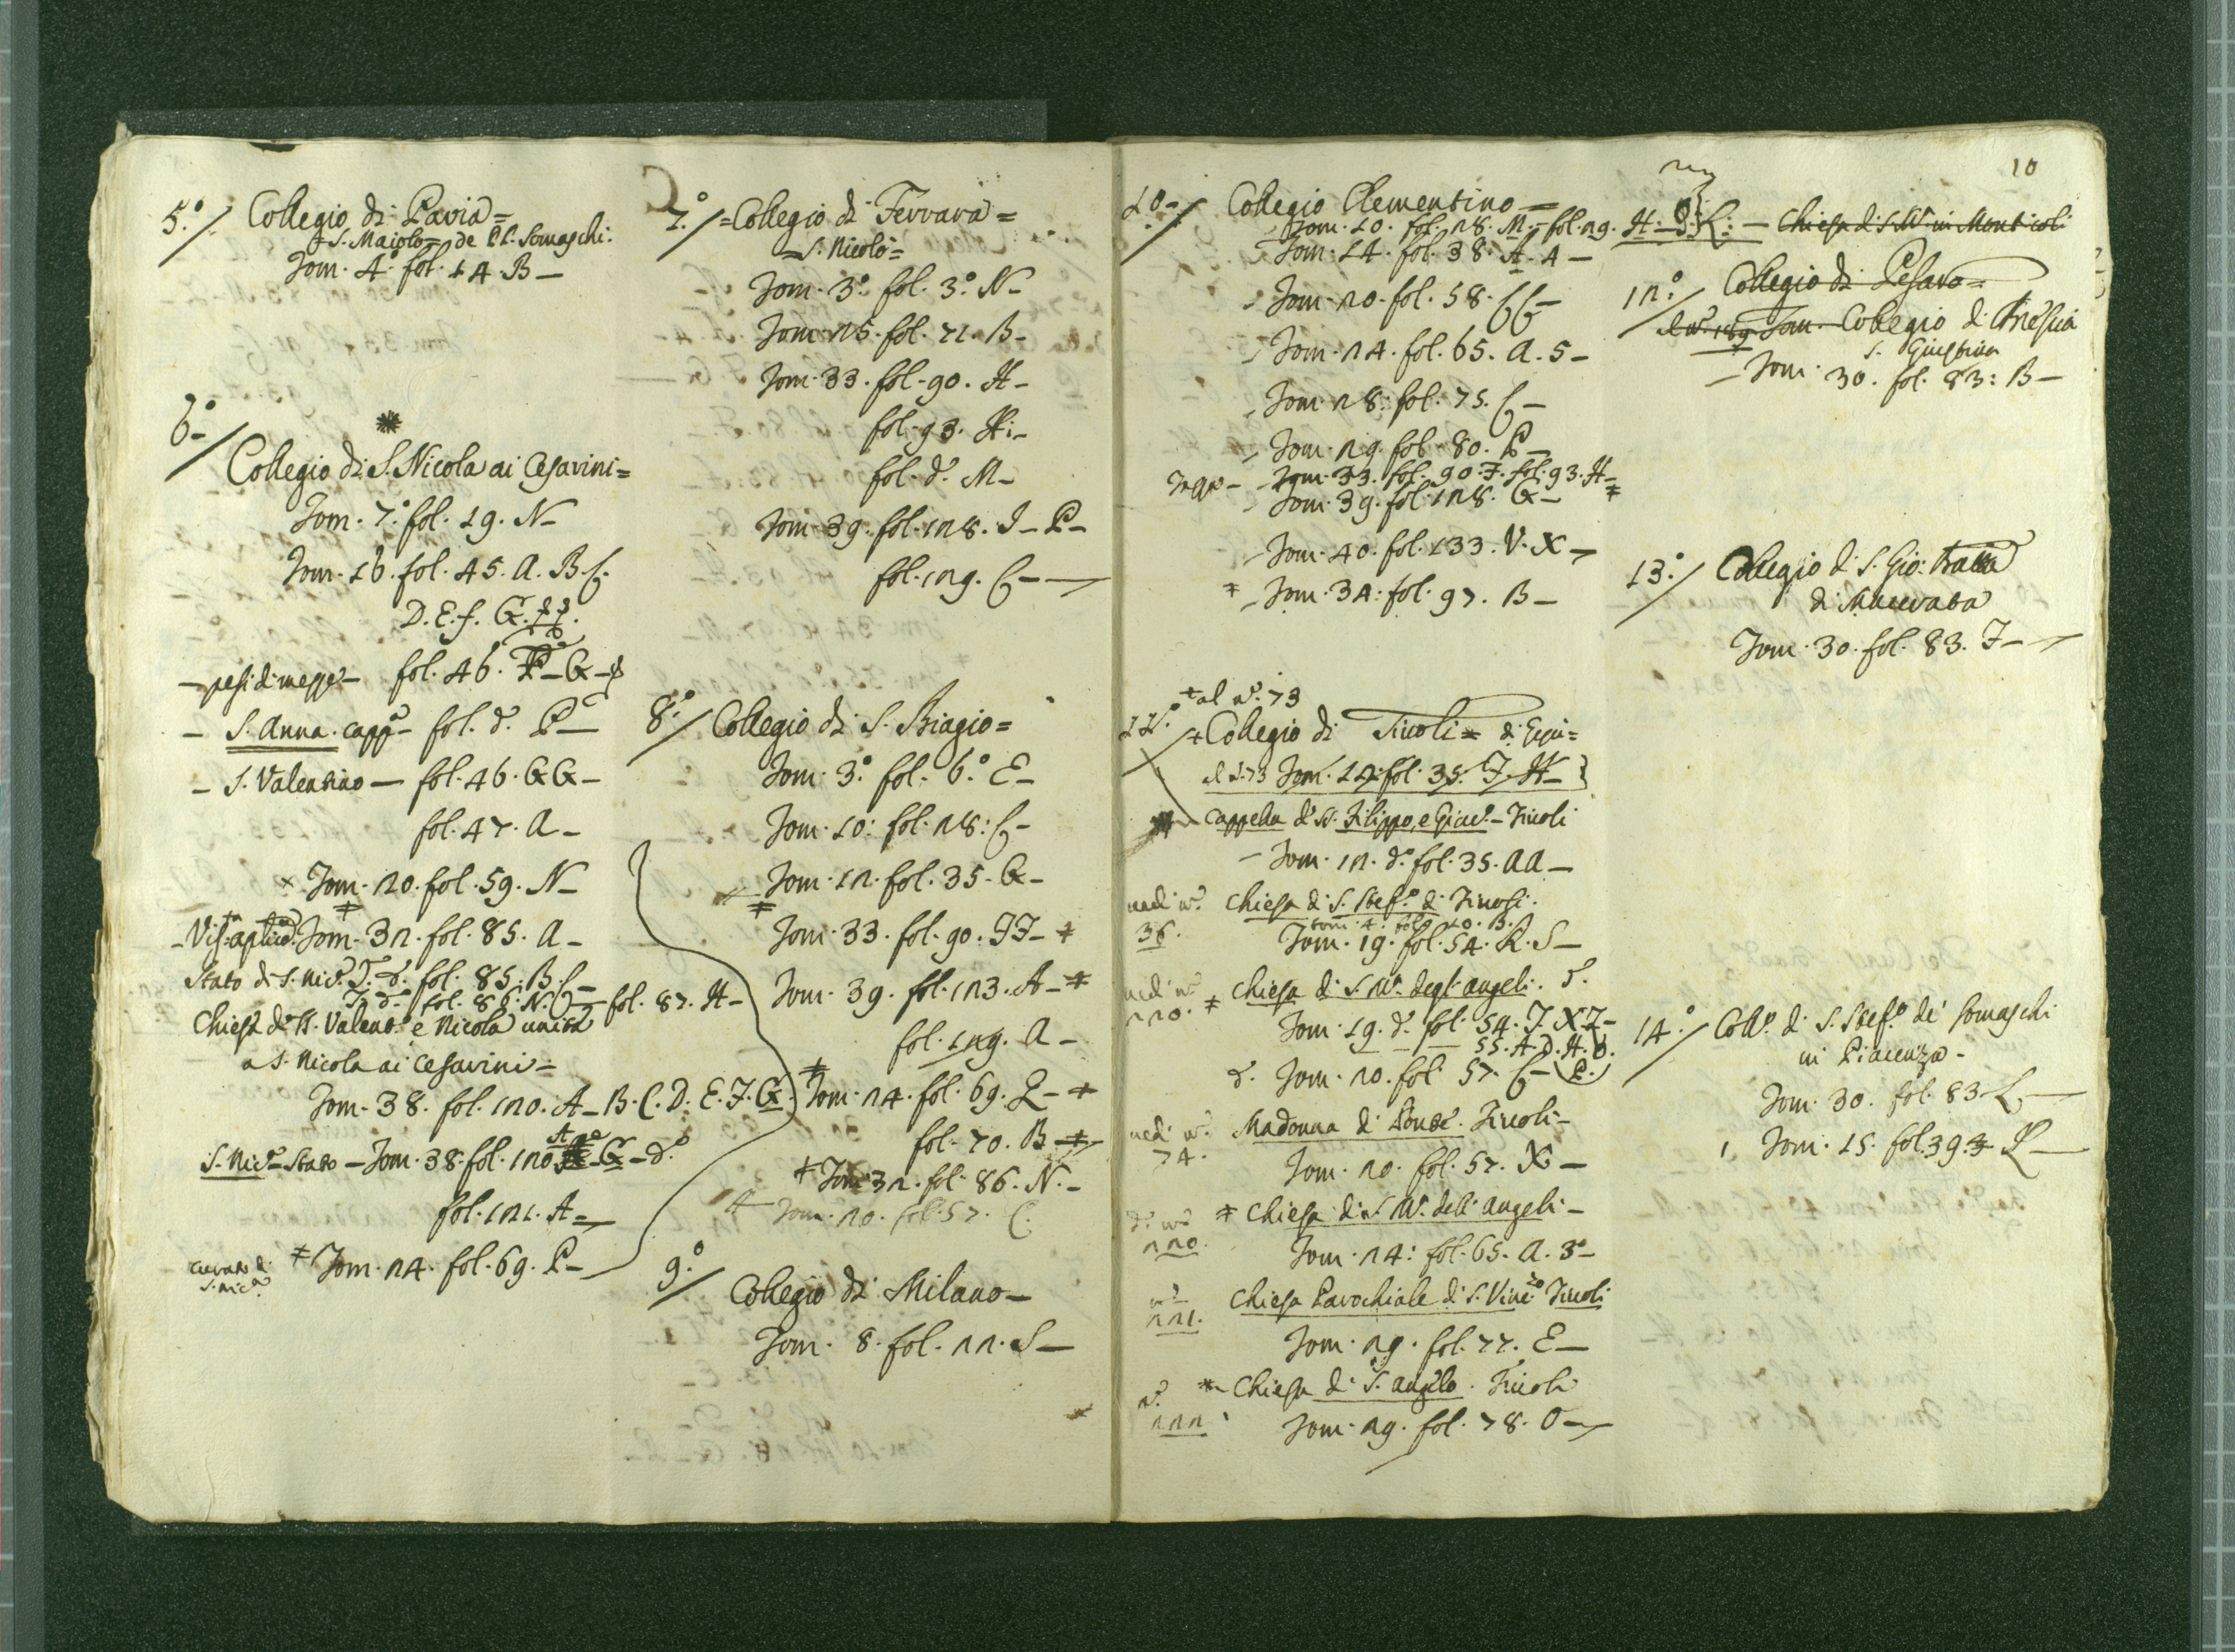 5.° Collegio di Pavia=
S. Maiolo= de PP. Somaschi.
Tom. 4.° fol. 14. B-
6° Collegio di S. Nicola ai Cesarini=
Tom. 7.° fol. 19. N-
Tom. 16. fol. 45. A. B. C.
D. E. f. G.
-pesi di messe- fol. 46. G-
- S. Anna. capp- fol. d.° P-
- S. Valentino- fol. 46. GG-
fol. 47. A-
Tom. 20. fol. 59. N-
Tom. 32. fol. 85. A-
Stato di S. Nic.ª T. d.° fol. 85. B. C-
T. d.° fol. 86. N. fol. 87. H-
Chiesa di SS. Valent.° e Nicola unita
a S. Nicola ai Cesarini=
Tom. 38. fol. 120. A-B. C. D. E. F. G.
S. Nic.ª Stato- Tom. 38. fol. 120 G- d.°
fol. 121. A=
S. Nic.ª Tom. 24. fol. 69. P-
7.° =Collegio di Ferrara=
=S. Nicolò=
Tom. 3.° fol. 3.° N-
Tom. 25. fol. 71. B-
Tom. 33. fol. 90. H-
fol. 93. H.-
fol. d.° M-
Tom. 39. fol. 128. I-P-
fol. 129. C-
8.° Collegio di S. Biagio=
Tom. 3.° fol. 6.° E-
Tom. 10. fol. 28. C-
Tom. 12. fol. 35. G-
Tom. 33. fol. 90. FF-
Tom. 39. fol. 123. A-
fol. 129. A-
Tom. 24. fol. 69. Q-
fol. 70. B-
Tom. 32. fol. 86. N.-
Tom. 20. fol. 57. C.
9.° Collegio di Milano-
Tom. 8. fol. 22. S-
10
10- Collegio Clementino=
Tom. 10. fol. 28. M.- fol. 29. H. Chiesa di S. M.ª in Monticoli
Tom. 14. fol. 38. A. 4-
Tom. 20. fol. 58. CC-
Tom. 24. fol. 65. A. 5-
Tom. 28. fol. 75. C-
Tom. 29. fol. 80. P-
Tom. 33. fol. 90. F. fol. 93. H-
Tom. 39. fol. 128. G-
Tom. 40. fol. 133. V. X-
Tom. 34. fol. 97. B-
al n.° 73
11.° Collegio di Tivoli=
Tom. 12. fol. 35. F. H-
cappella d. SS. Filippo, e Giac.°- Tivoli
Tom. 12. d.° fol. 35. AA-
vedi n.° chiesa di S. Stef.° di Tivoli.
tom. 4. fol. 10. B.
36. Tom. 19. fol. 54. R. S-
vedi n.° chiesa di S. M.ª degl'angeli. T.
220. Tom. 19. d.° fol. 54. T. X Z-
55. A. D. H.
d. Tom. 20. fol. 57. C- P.
vedi n.° Madonna di Ponte. Tivoli-
74. Tom. 20. fol. 57. X-
d.° n.° chiesa di S. M.ª dell'angeli-
220. Tom. 24. fol. 65. A. 3.°-
n.° chiesa Parochiale di S. Vinc.zo Tivoli
221. Tom. 29. fol. 77. E-
n.° chiesa di S. angelo. Tivoli
222. Tom. 29. fol. 78. O-
12.° Collegio di Pesaro=
Tom. Collegio di Brescia
S. Giustina
Tom. 30. fol. 83: B-
13.° Collegio di S. Gio: Batta
di Macerata
Tom. 30. fol. 83. F-
14.° Coll.° di S. Stef.° de' Somaschi
in Piacenza-
Tom. 30. fol. 83 L.-
Tom. 15. fol. 39.